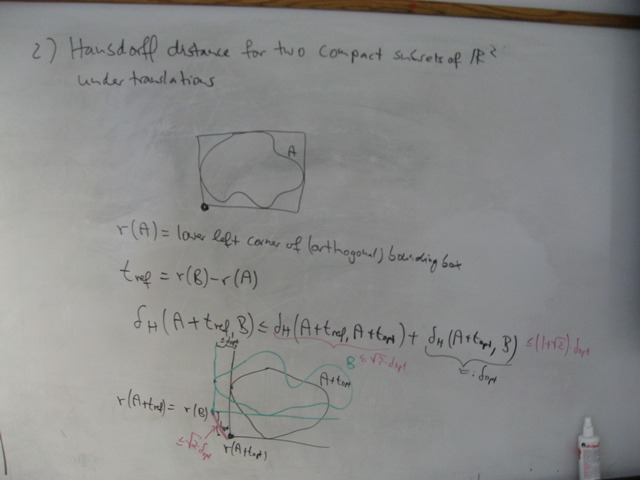 2) Hausdorff distance for two compact subsets of ℝ²
under translations
A
r(A) = lower left corner of (orthogonal) bounding box
t_ref = r(B) - r(A)
δ_H(A + t_ref, B) ≤ δ_H(A + t_ref, A + t_opt) + δ_H(A + t_opt, B) ≤ (1+√2)·δ_opt
≤ √2·δ_opt
=: δ_opt
≤ δ_opt
B
A + t_opt
r(A + t_ref) = r(B)
≤ √2·δ_opt
r(A + t_opt)